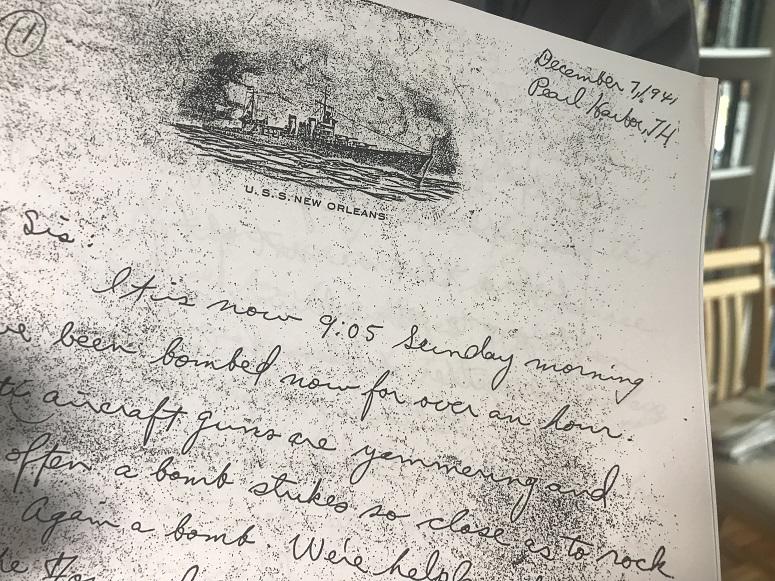 December 7, 1941
Pearl Harbor, TH
U.S.S. NEW ORLEANS
Sis:
It is now 9:05 Sunday morning
ve been bombed now for over an hour.
aircraft guns are yammering and
often a bomb strikes so close as to rock
Again a bomb. We're